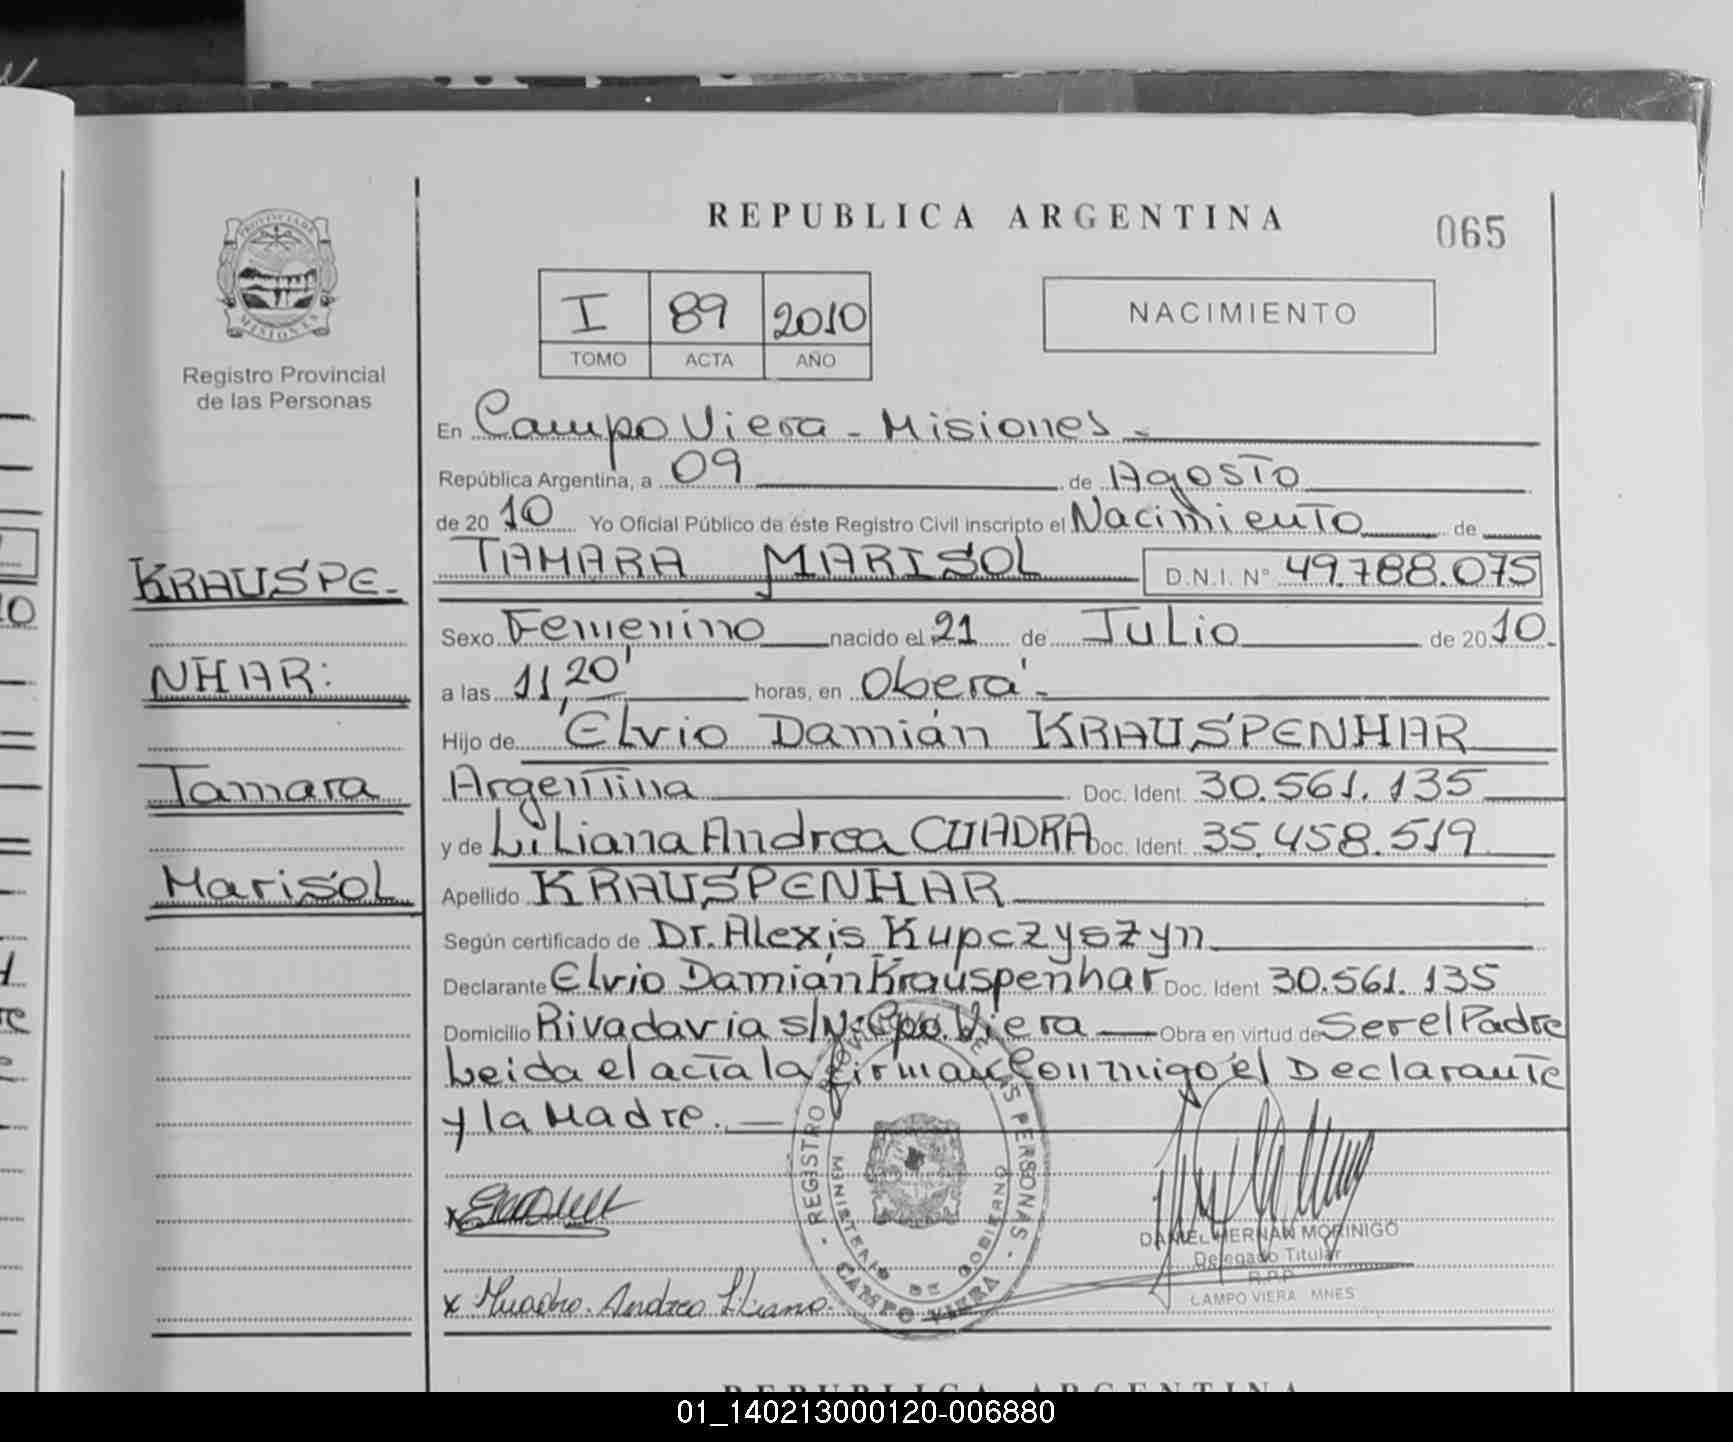 REPUBLICA ARGENTINA
065
PROVINCIA DE
MISIONES
Registro Provincial
de las Personas
I 89 2010
TOMO ACTA AÑO
NACIMIENTO
En Campo Viera - Misiones -
República Argentina, a 09 de Agosto
de 20 10 Yo Oficial Público de éste Registro Civil inscripto el Nacimiento de
TAMARA MARISOL D.N.I. N° 49.788.075
KRAUSPE-
NHAR:
Tamara
Marisol
Sexo Femenino nacido el 21 de Julio de 20 10.
a las 11,20' horas, en Oberá -
Hijo de Elvio Damián KRAUSPENHAR
Argentina Doc. Ident. 30.561.135
y de Liliana Andrea CUADRA Doc. Ident. 35.458.519
Apellido KRAUSPENHAR
Según certificado de Dr. Alexis Kupczyszyn
Declarante Elvio Damián Krauspenhar Doc. Ident 30.561.135
Domicilio Rivadavia s/N° Cpo. Viera Obra en virtud de Ser el Padre
Leida el acta la firman Conmigo el Declarante
y la Madre. —
REGISTRO PROVINCIAL DE LAS PERSONAS
MINISTERIO DE GOBIERNO
CAMPO VIERA
DANIEL HERNAN MORINIGO
Delegado Titular
R.P.P.
CAMPO VIERA MNES
REPUBLICA ARGENTINA
01_140213000120-006880